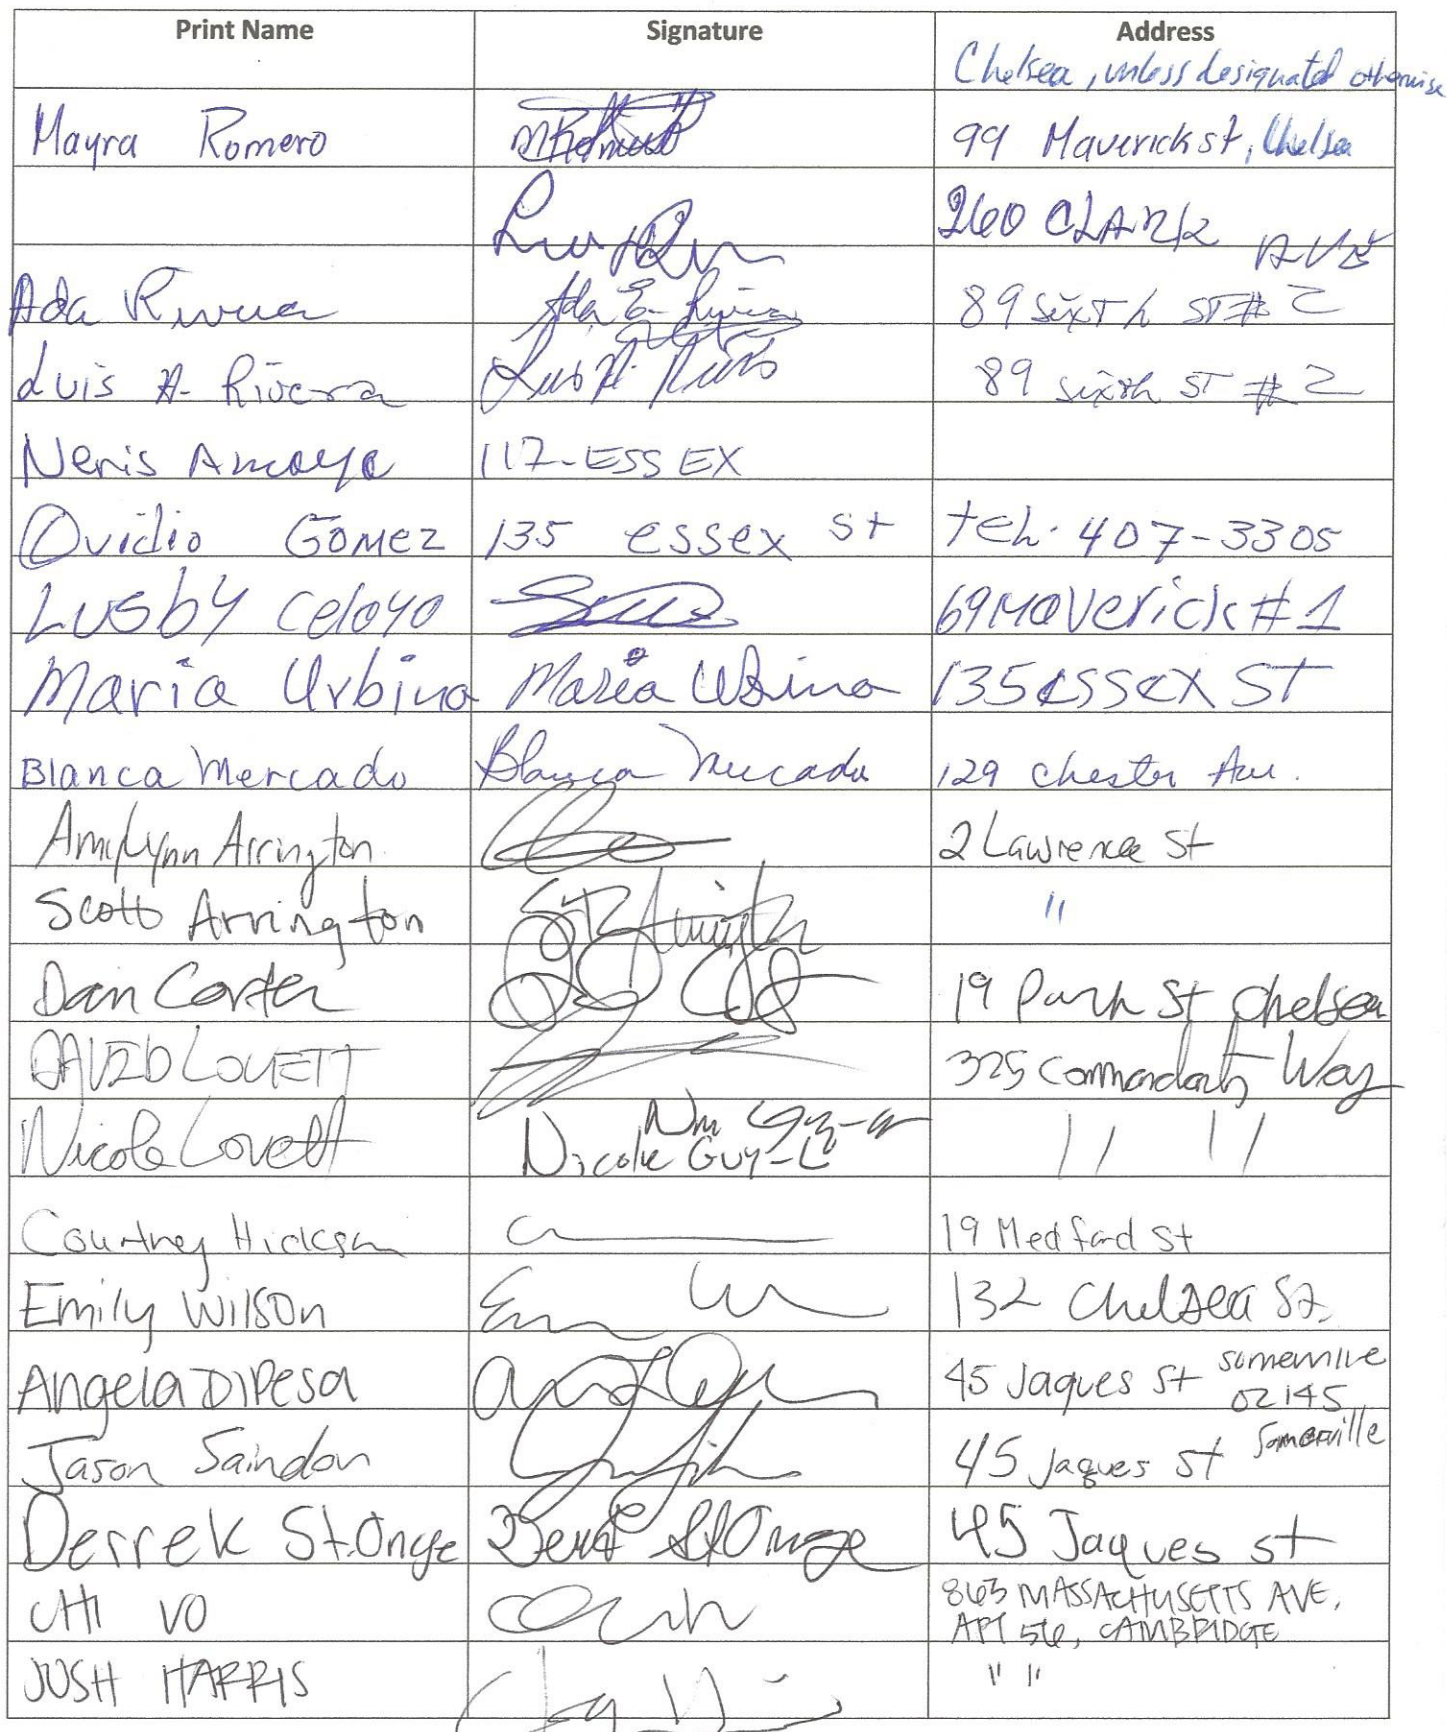 Print Name Signature Address
Chelsea, unless designated otherwise
Mayra Romero 99 Maverick st, Chelsea
260 CLARK AVE
Ada Rivera Ada E. Rivera 89 SixTh ST # 2
Luis A. Rivera Luis A. 89 sixth ST # 2
Neris Amaya 117-ESSEX
Ovidio GOMEZ 135 essex st teh. 407-3305
Lusby Celoyo 69 Maverick #1
Maria Urbina Maria Urbina 135 essex ST
Blanca Mercado Blanca Mercado 129 Chester Ave.
AmyLynn Arrington 2 Lawrence St
Scott Arrington "
Dan Corter 19 Park St Chelsea
DAVID LOVETT 325 Commandants Way
Nicole Lovett Nicole Guy-L " "
Courtney Hickson 19 Medford St
Emily Wilson 132 Chelsea St.
Angela DiPesa 45 Jaques St Somerville
02145
Jason Saindon 45 Jaques St Somerville
Derrek St.Onge Derrek StOnge 45 Jaques st
CHI VO 863 MASSACHUSETTS AVE,
APT 56, CAMBRIDGE
JOSH HARRIS " "